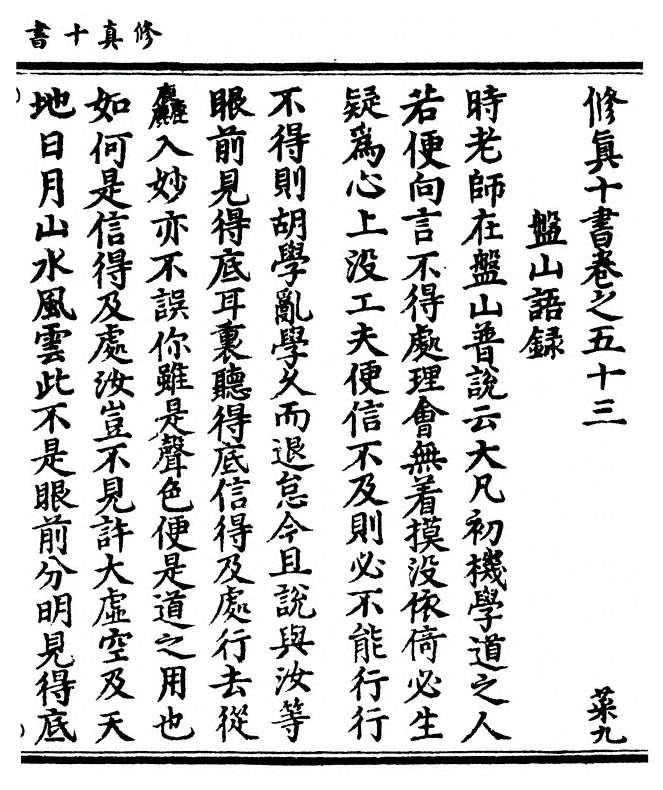 修真十書
修真十書卷之五十三
菜九
盤山語録
時老師在盤山普說云大凡初機學道之人
若便向言不得處理會無着摸没依倚必生
疑爲心上没工夫便信不及則必不能行行
不得則胡學亂學久而退怠今且說與汝等
眼前見得底耳裏聽得底信得及處行去從
麤入妙亦不誤你雖是聲色便是道之用也
如何是信得及處汝豈不見許大虛空及天
地日月山水風雲此不是眼前分明見得底